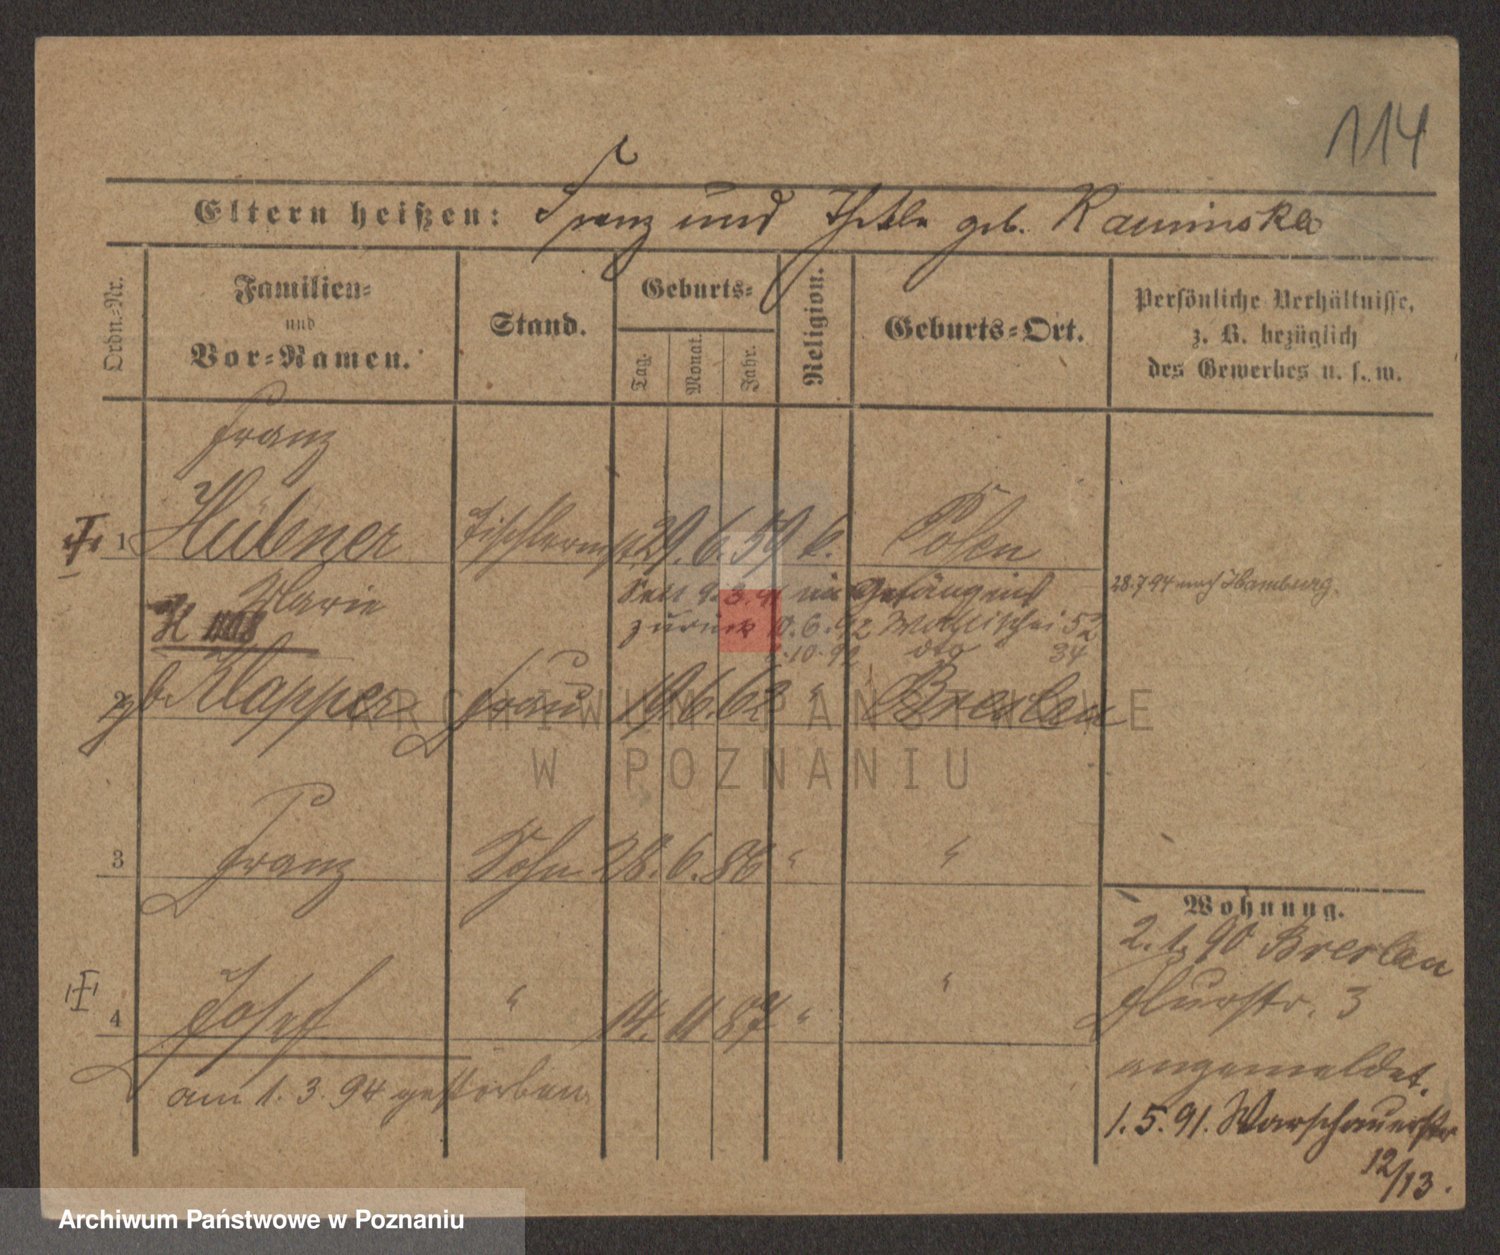 114
Eltern heißen: Franz und Thekla geb. Kaminska
Ordn.-Nr.
Familien-
und
Vor-Namen.
Stand.
Geburts-
Tag.
Monat.
Jahr.
Religion.
Geburts-Ort.
Persönliche Verhältnisse,
z. B. bezüglich
des Gewerbes u. s. w.
Franz
1 Hübner Tischlermstr 29. 6. 59 k. Posen
Marie
Seit 9. 3. 91 im Gefängniß
zurück 10. 6. 92 Wallischei 52
10. 92 dto 34
28.7 94 nach Hamburg.
2 gb. Klapper Frau 19. 6. 63 " Breslau
3 Franz Sohn 28. 6. 86 " "
4 Josef " 14. 11 87 " "
am 1. 3. 94 gestorben
Wohnung.
2. 1. 90 Breslau
Flurstr. 3
angemeldet.
1. 5. 91. Warschauerstr
12/13.
ARCHIWUM PAŃSTWOWE
W POZNANIU
Archiwum Państwowe w Poznaniu